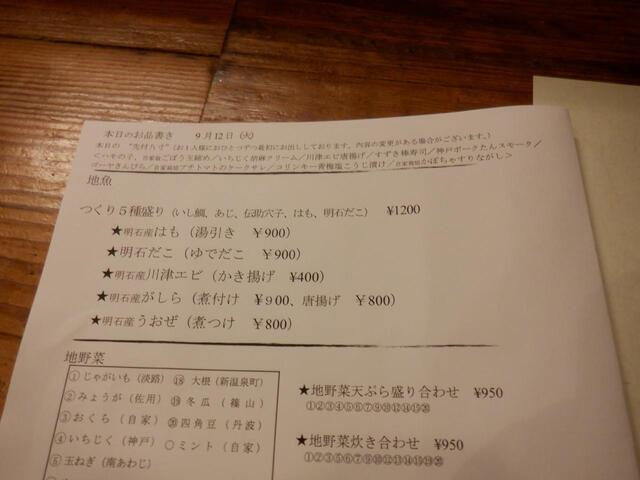 本日のお品書き　9月12日（火）
本日の “先付八寸”（お1人様におひとつずつ最初にお出ししております。内容の変更がある場合がございます。）
＜ハモの子、自家製ごぼう玉締め／いちじく胡麻クリーム／川津エビ唐揚げ／すずき棒寿司／神戸ポークたんスモーク／
ゴーヤきんぴら／自家栽培プチトマトのケークサレ／コリンキー青梅塩こうじ漬け／自家栽培かぼちゃすりながし＞
地魚
つくり5種盛り（いし鯛、あじ、伝助穴子、はも、明石だこ）　¥1200
★明石産はも（湯引き　￥900）
★明石だこ（ゆでだこ　￥900）
★明石産川津エビ（かき揚げ　¥400）
★明石産がしら（煮付け　￥900、唐揚げ　￥800）
★明石産うおぜ（煮つけ　￥800）
地野菜
①じゃがいも（淡路）　⑱ 大根（新温泉町）
②みょうが（佐用）　⑲ 冬瓜（篠山）
③おくら（自家）　⑳ 四角豆（丹波）
④いちじく（神戸）　○ミント（自家）
⑤玉ねぎ（南あわじ）
★地野菜天ぷら盛り合わせ　¥950
①②③④⑤⑦⑨⑩⑫⑭⑮⑳
★地野菜炊き合わせ　¥950